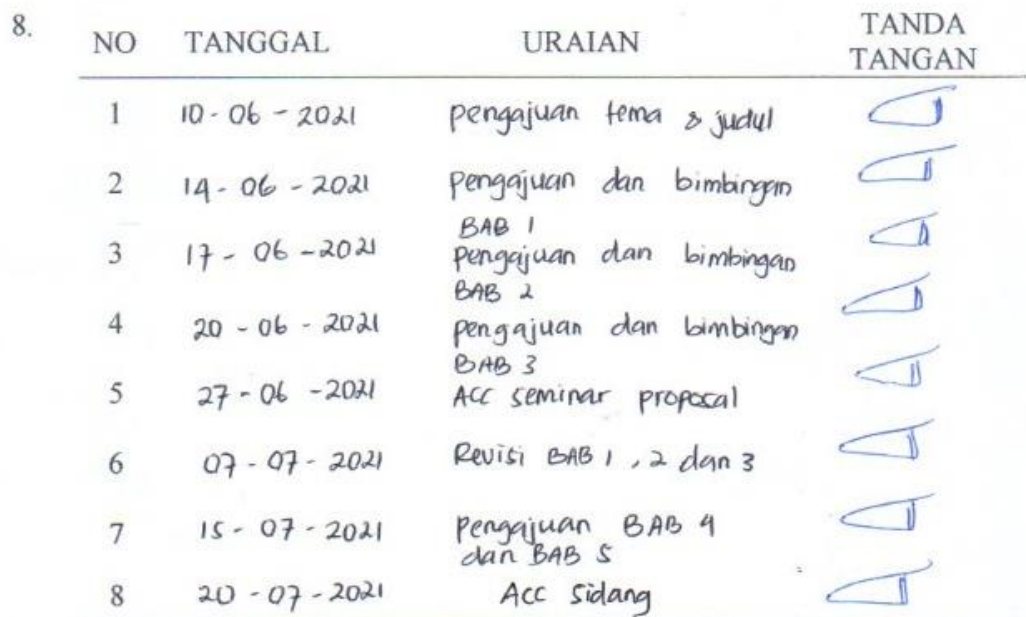 8.
NO TANGGAL URAIAN TANDA TANGAN
1 10-06-2021 pengajuan tema & judul
2 14-06-2021 pengajuan dan bimbingan
BAB 1
3 17-06-2021 pengajuan dan bimbingan
BAB 2
4 20-06-2021 pengajuan dan bimbingan
BAB 3
5 27-06-2021 Acc seminar proposal
6 07-07-2021 Revisi BAB 1, 2 dan 3
7 15-07-2021 pengajuan BAB 4
dan BAB 5
8 20-07-2021 Acc Sidang